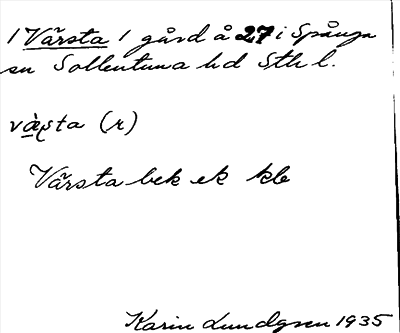 / Värsta / gård å 27 i Spånga
sn Sollentuna hd Sth l.
væ̀sta (r)
Värsta bek ek kb
Karin Lundgren 1935